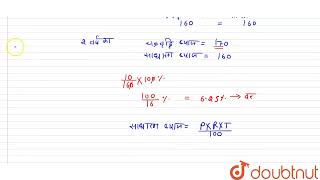 160 = 160
2 वर्ष का चक्रवृद्धि ब्याज = 170
साधारण ब्याज = 160
10/160 × 100%
100/16 % = 6.25% → दर
साधारण ब्याज = P×R×T/100
doubtnut